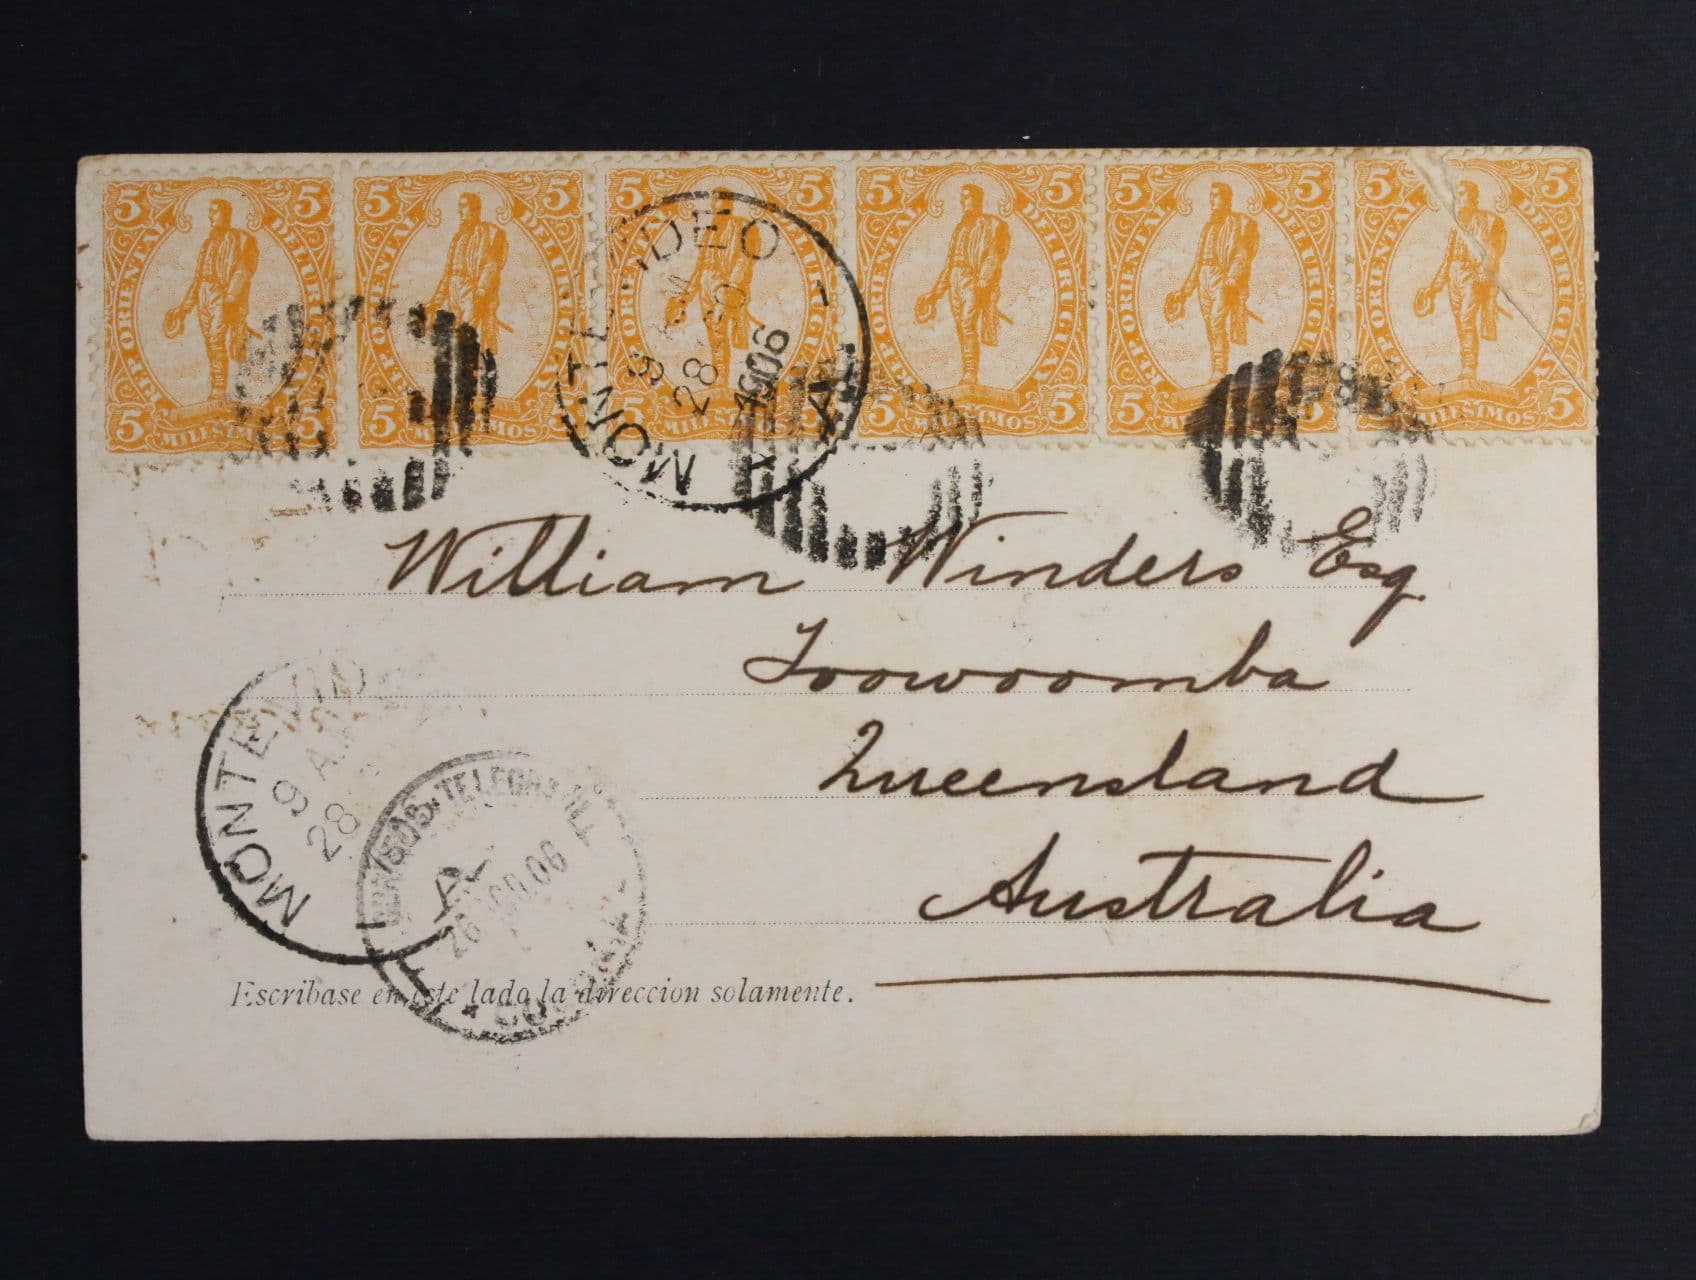 5 5 5 5 5 5 5 5 5 5 5 5
REP. ORIENTAL DEL URUGUAY REP. ORIENTAL DEL URUGUAY REP. ORIENTAL DEL URUGUAY REP. ORIENTAL DEL URUGUAY REP. ORIENTAL DEL URUGUAY REP. ORIENTAL DEL URUGUAY
5 MILESIMOS 5 5 MILESIMOS 5 5 MILESIMOS 5 5 MILESIMOS 5 5 MILESIMOS 5 5 MILESIMOS 5
MONTEVIDEO
9
28
1906
A
William Winders Esq
Toowoomba
Queensland
Australia
MONTEVID
9 A.M
28
A
26 AGO.06
Escribase en este lado la direccion solamente.